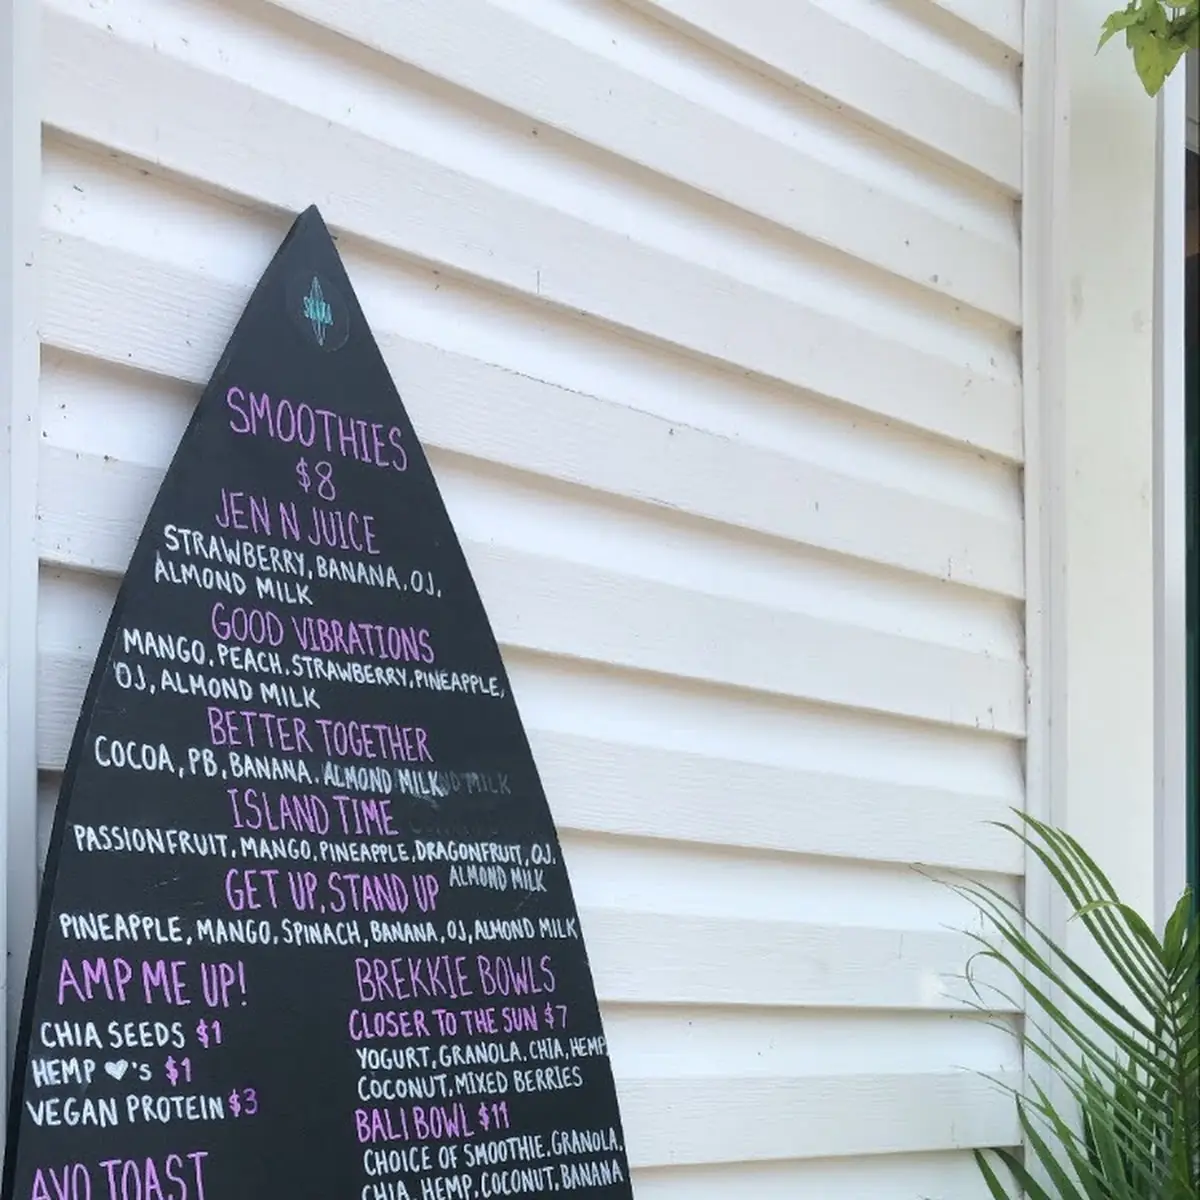 SMOOTHIES
$8
JEN N JUICE
STRAWBERRY, BANANA, OJ,
ALMOND MILK
GOOD VIBRATIONS
MANGO, PEACH, STRAWBERRY, PINEAPPLE,
OJ, ALMOND MILK
BETTER TOGETHER
COCOA, PB, BANANA, ALMOND MILK
ISLAND TIME
PASSIONFRUIT, MANGO, PINEAPPLE, DRAGONFRUIT, OJ,
ALMOND MILK
GET UP, STAND UP
PINEAPPLE, MANGO, SPINACH, BANANA, OJ, ALMOND MILK
AMP ME UP!
CHIA SEEDS $1
HEMP ♥'S $1
VEGAN PROTEIN $3
AVO TOAST
BREKKIE BOWLS
CLOSER TO THE SUN $7
YOGURT, GRANOLA, CHIA, HEMP,
COCONUT, MIXED BERRIES
BALI BOWL $11
CHOICE OF SMOOTHIE, GRANOLA,
CHIA, HEMP, COCONUT, BANANA